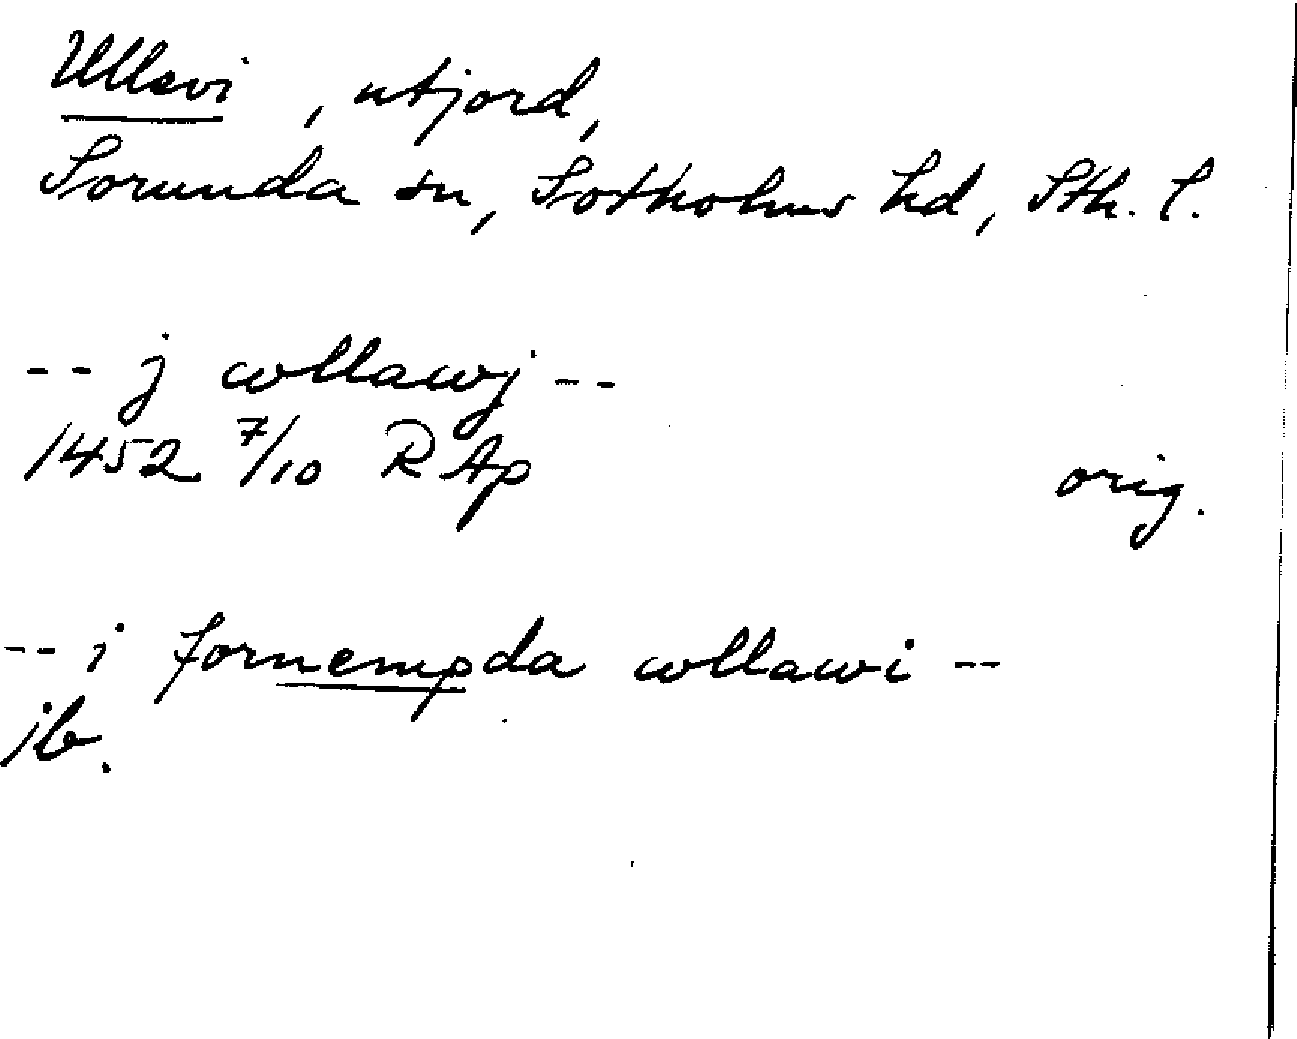 Ullevi, utjord,
Sorunda sn, Sotholms hd, Sth. l.
-- j wllawj --
1452 7/10 RAp
orig.
-- i fornempda wllawi --
ib.